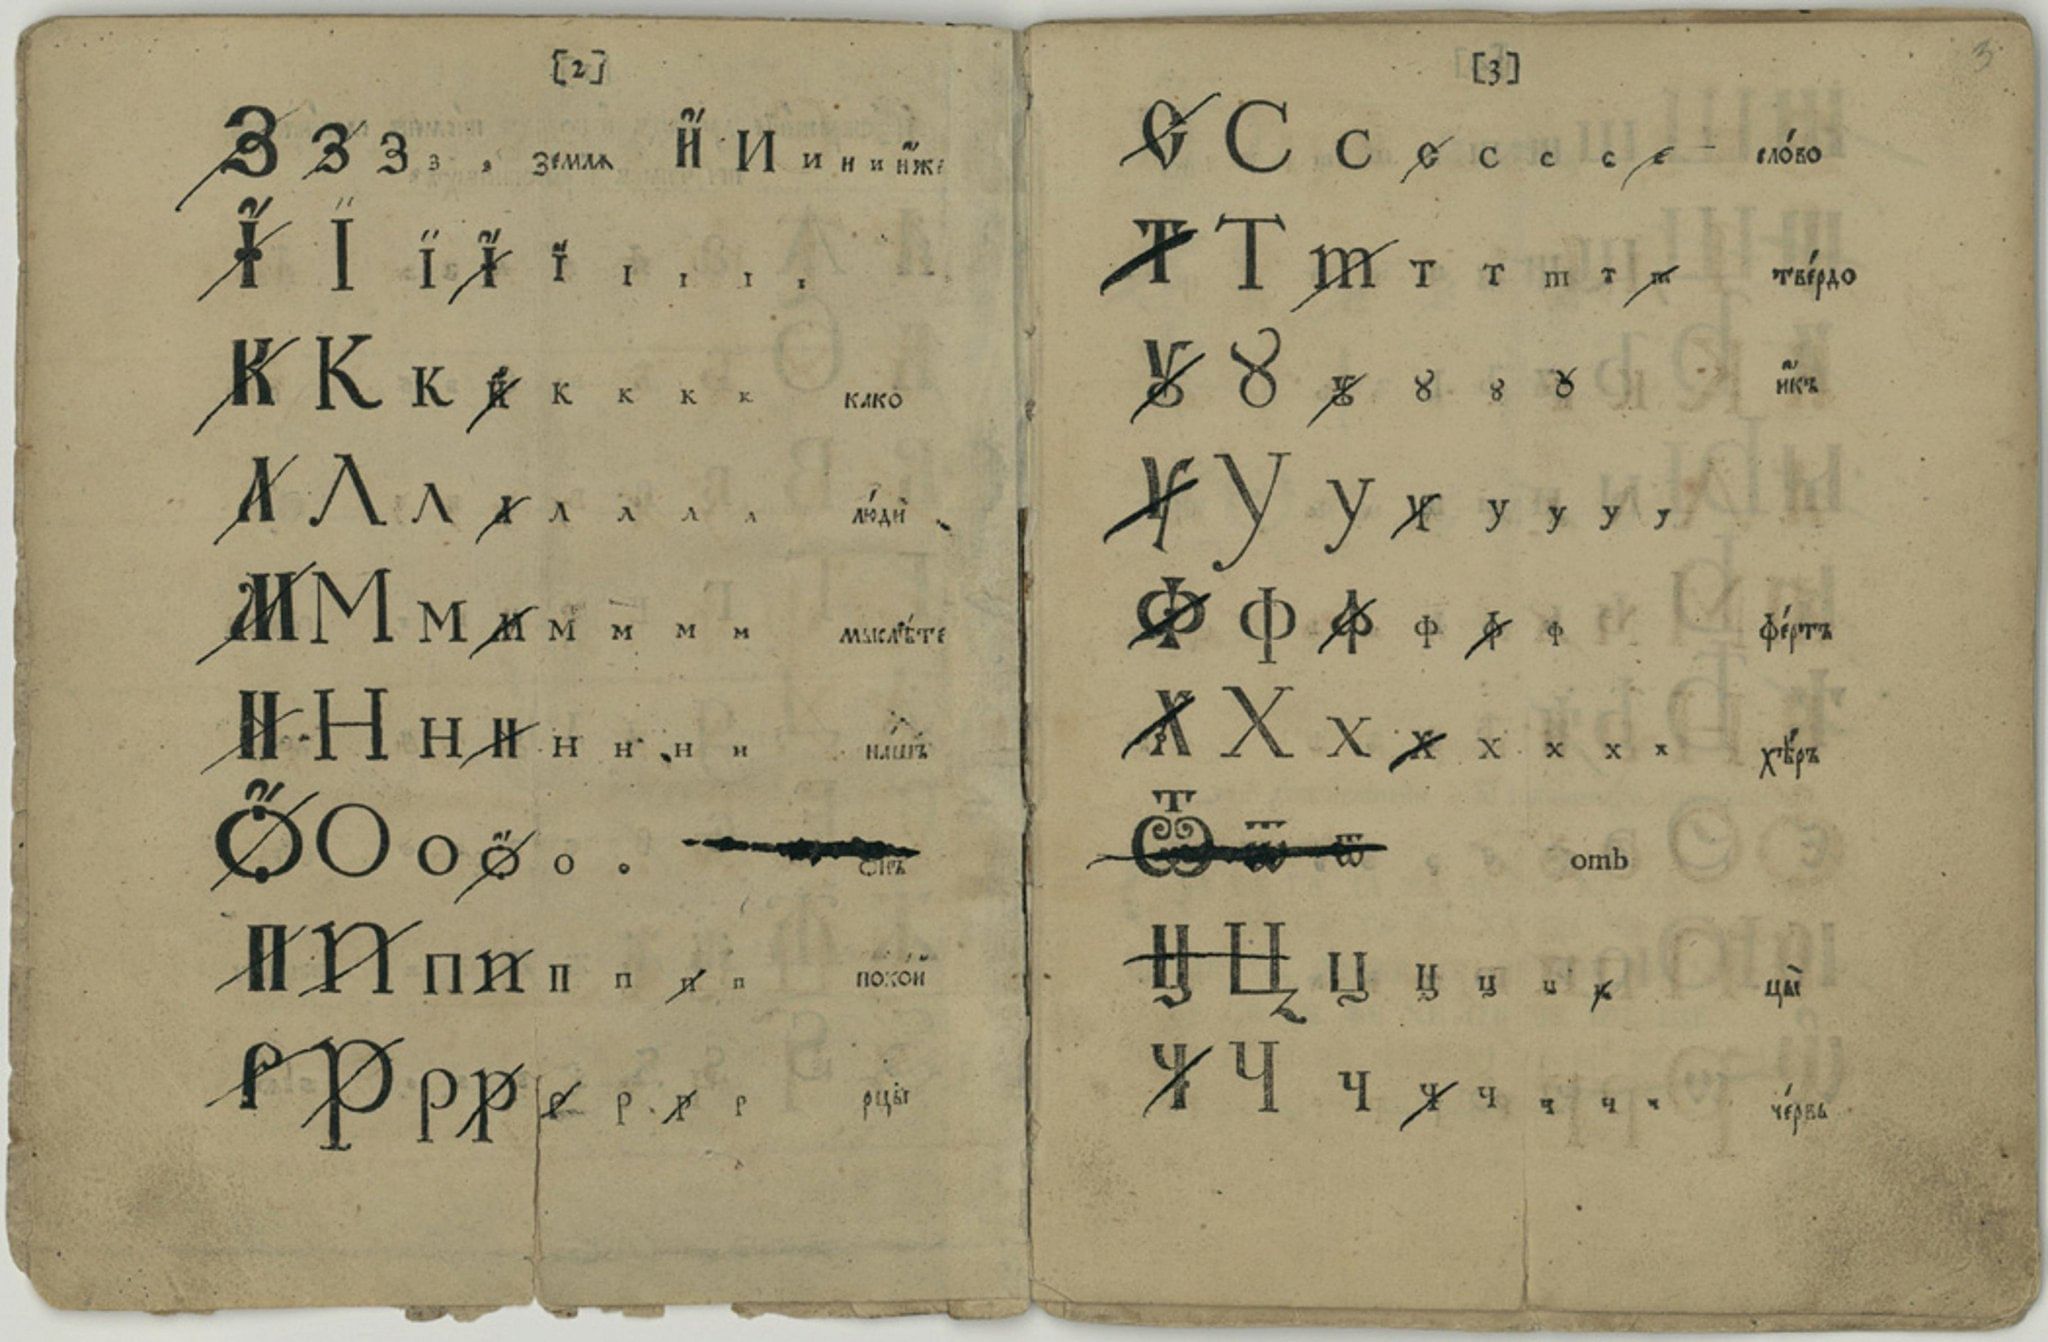 [2]
З З З з з земля И И и н и и иже
Ї Ї ї ї ї і і і і
К К к к к к к к како
Л Л л л л л л л люди
М М м м м м м м мыслѣте
Н Н н н н н н н нашъ
О О о о о о онъ
П П п п п п п п покой
Р Р р р р р р р рцы
[3]
3
С С с с с с с с слово
Т Т т т т т т т твердо
Ꙋ Ꙋ ꙋ ꙋ ꙋ ꙋ икъ
У У у у у у у у
Ф Ф ф ф ф ф фертъ
Х Х х х х х х х хѣръ
Ѿ ѿ ѿ отъ
Ц Ц ц ц ц ц ц цы
Ч Ч ч ч ч ч ч ч червь